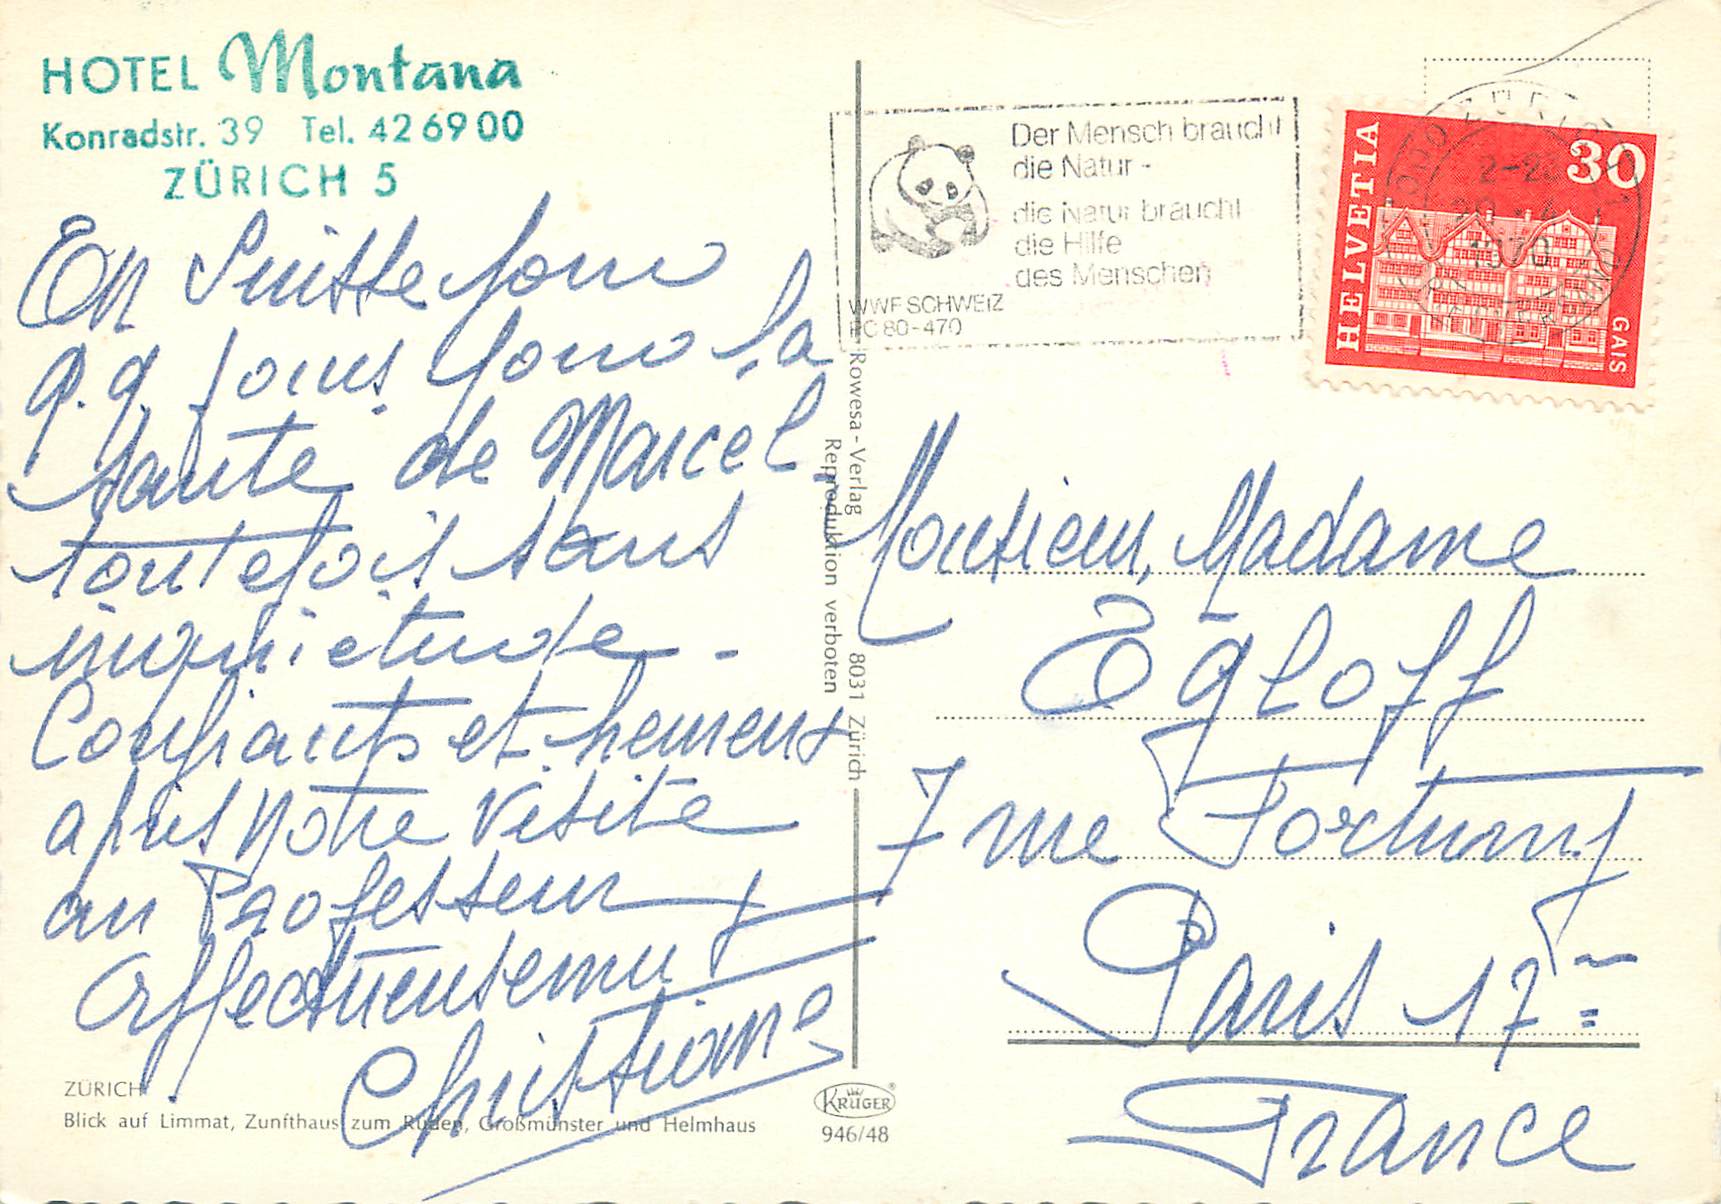 HOTEL Montana
Konradstr. 39 Tel. 42 69 00
ZÜRICH 5
En Suisse pour
q.q. jours pour la
santé de Marcel,
toutefois sans
inquiétude -
Confiants et heureux
après notre visite
au Professeur
Affectueusement
Christiane
ZÜRICH
Blick auf Limmat, Zunfthaus zum Rüden, Großmünster und Helmhaus
Rowesa-Verlag 8031 Zürich
Reproduktion verboten
KRÜGER
946/48
Der Mensch braucht
die Natur -
die Natur braucht
die Hilfe
des Menschen
WWF SCHWEIZ
PC 80-470
HELVETIA
30
GAIS
1970
Monsieur, Madame
Egloff
7 rue Fortuny
Paris 17
France